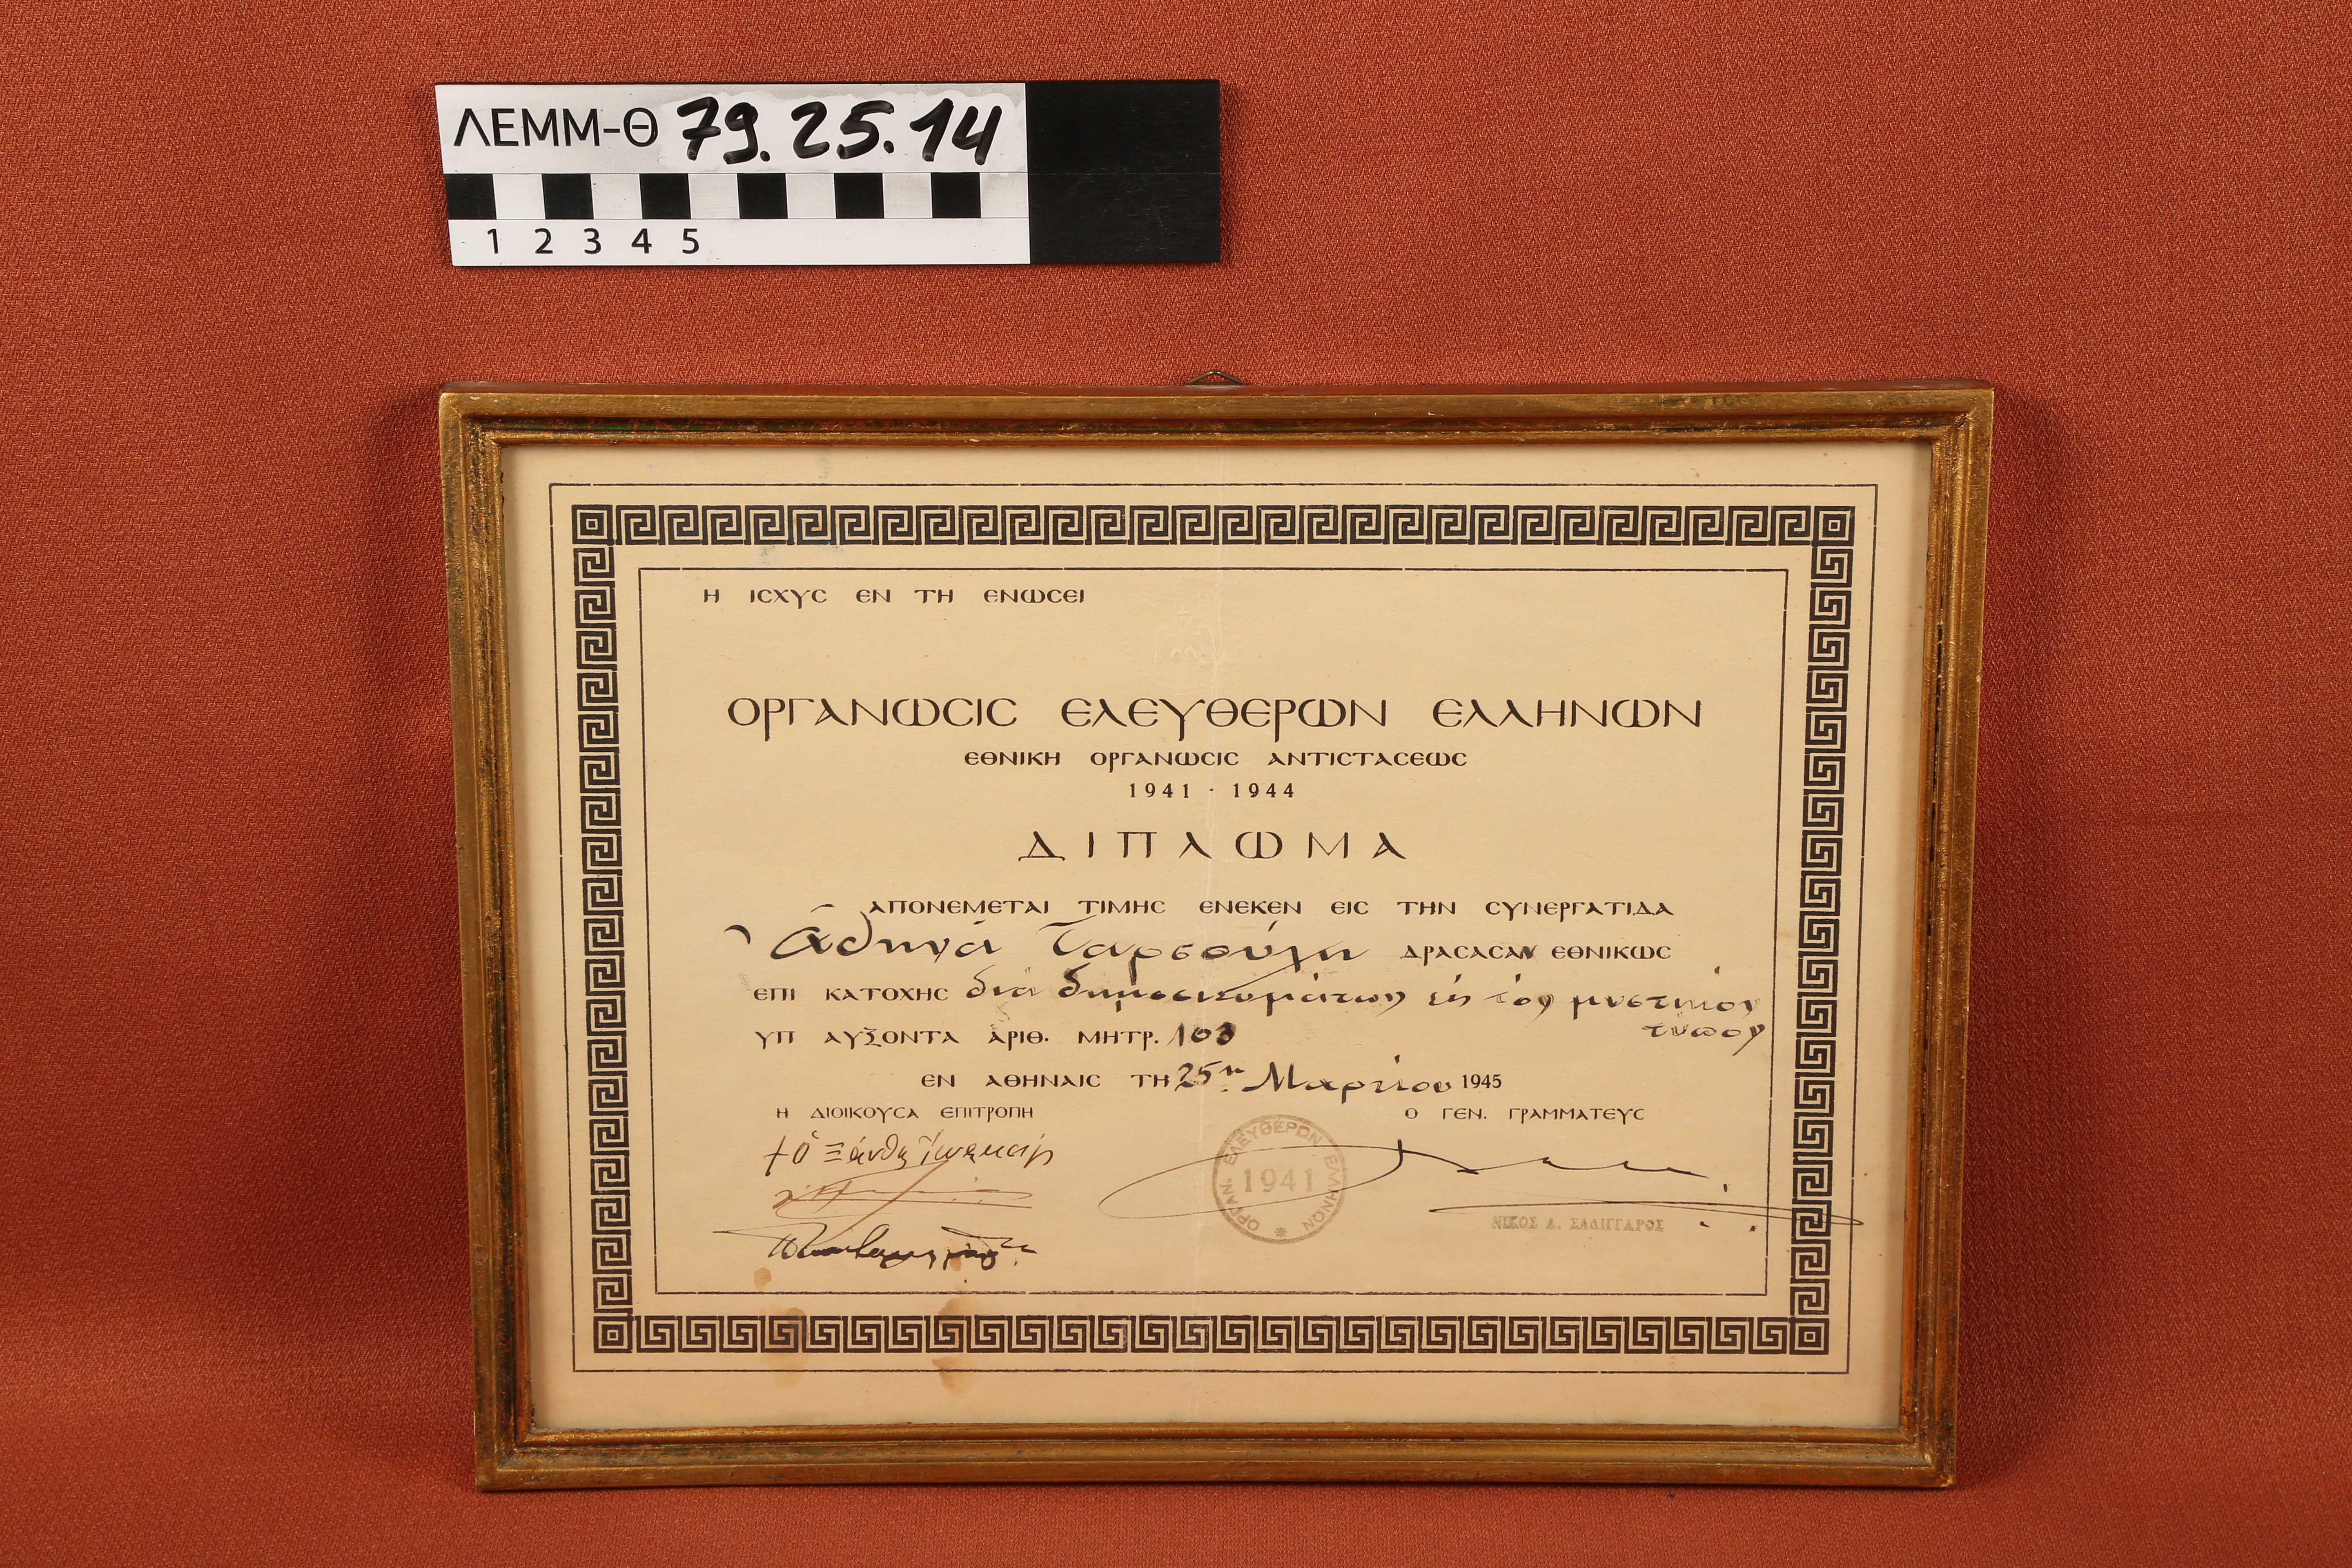 ΛΕΜΜ-Θ 79.25.14
1 2 3 4 5
Η ΙϹΧΥϹ ΕΝ ΤΗ ΕΝΩϹΕΙ
ΟΡΓΑΝΩϹΙϹ ΕΛΕΥΘΕΡΩΝ ΕΛΛΗΝΩΝ
ΕΘΝΙΚΗ ΟΡΓΑΝΩϹΙϹ ΑΝΤΙϹΤΑϹΕΩϹ
1941 - 1944
ΔΙΠΛΩΜΑ
ΑΠΟΝΕΜΕΤΑΙ ΤΙΜΗϹ ΕΝΕΚΕΝ ΕΙϹ ΤΗΝ ϹΥΝΕΡΓΑΤΙΔΑ
Ἀθηνᾶ Ταρσούλη ΔΡΑϹΑϹΑΝ ΕΘΝΙΚΩϹ
ΕΠΙ ΚΑΤΟΧΗϹ διὰ δημοσιευμάτων εἰς τὸν μυστικὸν
τύπον
ΥΠ ΑΥΞΟΝΤΑ ΑΡΙΘ. ΜΗΤΡ. 103
ΕΝ ΑΘΗΝΑΙϹ ΤΗ 25η Μαρτίου 1945
Η ΔΙΟΙΚΟΥϹΑ ΕΠΙΤΡΟΠΗ
Ο ΓΕΝ. ΓΡΑΜΜΑΤΕΥϹ
† ὁ Ξάνθης Ἰωακείμ
ΟΡΓΑΝ. ΕΛΕΥΘΕΡΩΝ ΕΛΛΗΝΩΝ
1941
ΝΙΚΟΣ Α. ΣΑΛΙΓΓΑΡΟΣ